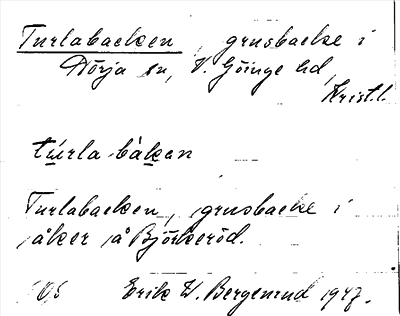 Turlabacken, grusbacke i
Dörja sn, V. Göinge hd,
Krist.l.
tu̇rla bàkan
Turlabacken, grusbacke i
åker å Björkeröd.
Erik W. Bergenrud 1947.